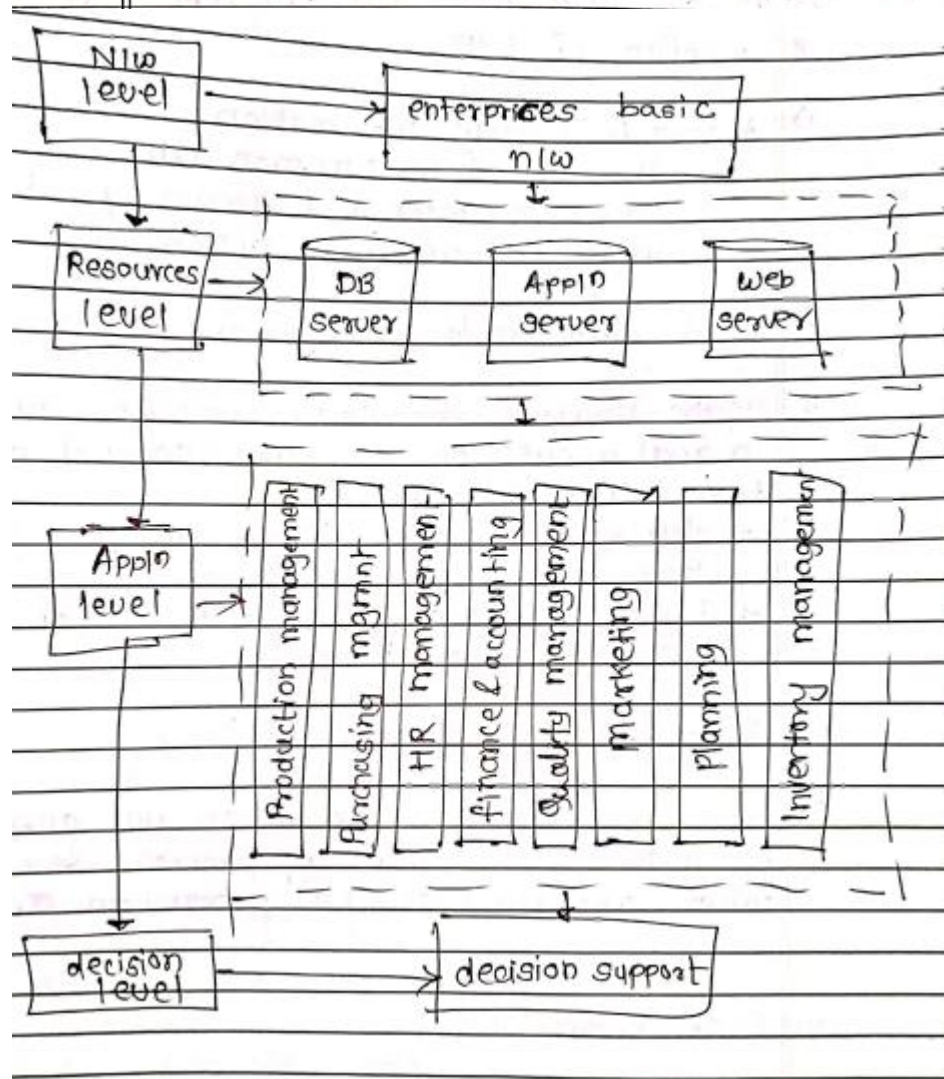 N/w
level
enterprices basic
n/w
Resources
level
DB
server
Appln
server
web
server
Appln
level
Production management
Purchasing mgmnt
HR management
finance & accounting
Quality management
marketing
planning
Inventory management
decision
level
decision support